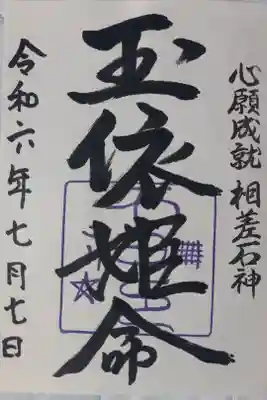 心願成就 相差石神
玉依姫命
令和六年七月七日